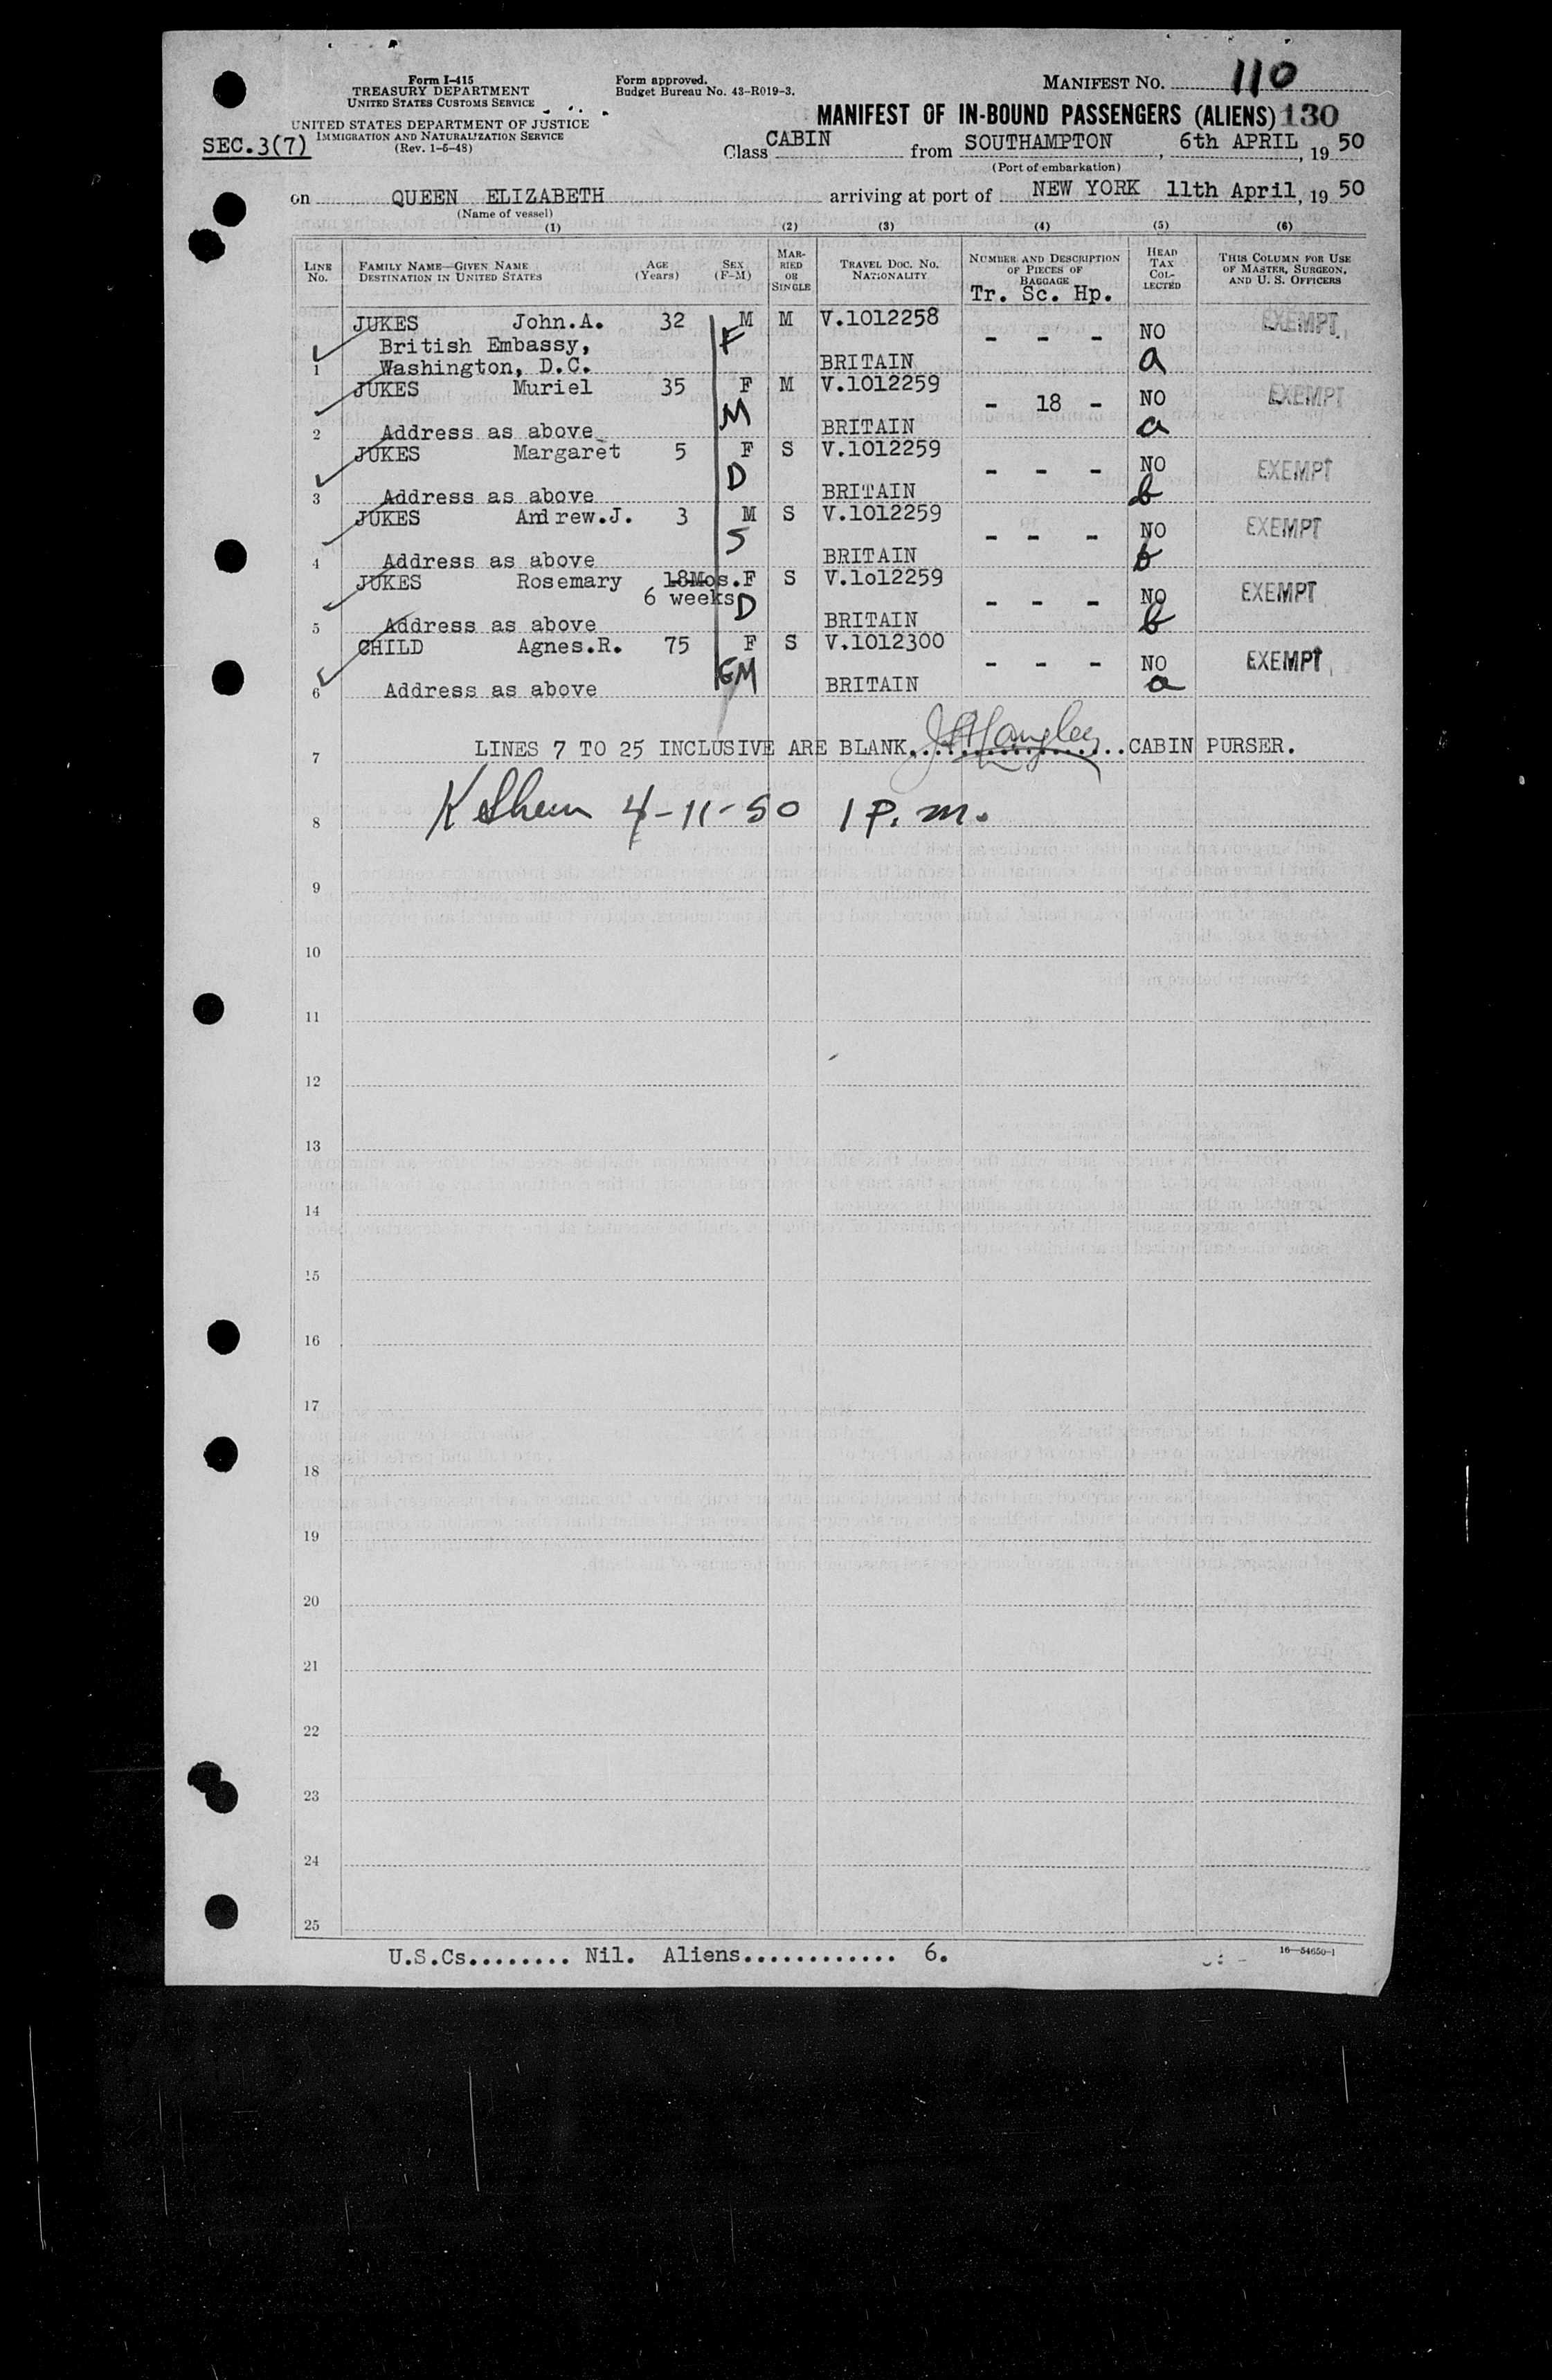 Form I-415
TREASURY DEPARTMENT
UNITED STATES CUSTOMS SERVICE
UNITED STATES DEPARTMENT OF JUSTICE
IMMIGRATION AND NATURALIZATION SERVICE
(Rev. 1-5-48)
SEC.3(7)
Form approved.
Budget Bureau No. 43-R019-3.
MANIFEST NO. 110
MANIFEST OF IN-BOUND PASSENGERS (ALIENS) 130
Class CABIN from SOUTHAMPTON, 6th APRIL, 1950
(Port of embarkation)
on QUEEN ELIZABETH arriving at port of NEW YORK 11th April, 1950
(Name of vessel)
(1) (2) (3) (4) (5) (6)
LINE No. FAMILY NAME—GIVEN NAME DESTINATION IN UNITED STATES AGE (Years) SEX (F-M) MARRIED OR SINGLE TRAVEL DOC. NO. NATIONALITY NUMBER AND DESCRIPTION OF PIECES OF BAGGAGE HEAD TAX COLLECTED THIS COLUMN FOR USE OF MASTER, SURGEON, AND U. S. OFFICERS
Tr. Sc. Hp.
JUKES John.A. 32 M M V.1012258 EXEMPT
British Embassy, F - - - NO
1 Washington, D.C. BRITAIN a
JUKES Muriel 35 F M V.1012259 EXEMPT
M - 18 - NO
2 Address as above BRITAIN a
JUKES Margaret 5 F S V.1012259
D - - - NO EXEMPT
3 Address as above BRITAIN b
JUKES Andrew.J. 3 M S V.1012259
S - - - NO EXEMPT
4 Address as above BRITAIN b
JUKES Rosemary 18Mos. F S V.1012259
6 weeks D - - - NO EXEMPT
5 Address as above BRITAIN b
CHILD Agnes.R. 75 F S V.1012300
GM - - - NO EXEMPT
6 Address as above BRITAIN a
7 LINES 7 TO 25 INCLUSIVE ARE BLANK. CABIN PURSER.
8 4-11-50 1 P.m.
9
10
11
12
13
14
15
16
17
18
19
20
21
22
23
24
25
U.S.Cs........ Nil. Aliens............ 6.
16—54650-1